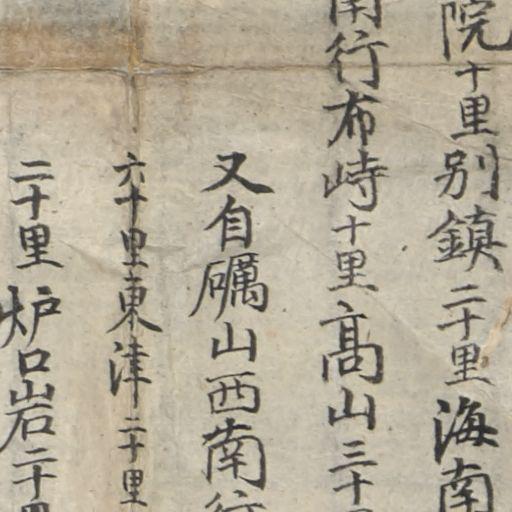 院十里別鎮二十里海南
南行布峙十里高山三十里
又自礪山西南行
六十里東津二十里
二十里炉口岩二十里